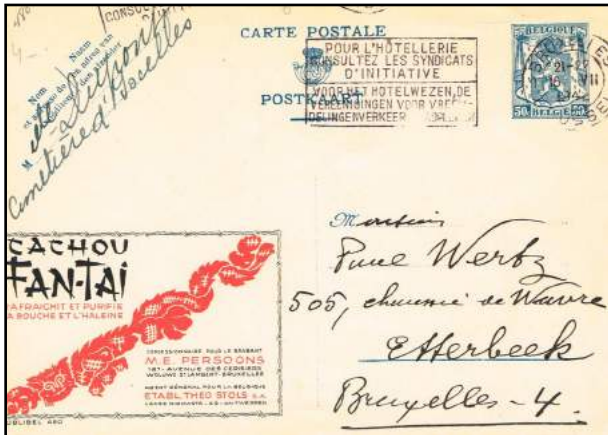 480
CONSU
CARTE POSTALE
BELGIQUE
POUR L'HÔTELLERIE
CONSULTEZ LES SYNDICATS
D'INITIATIVE
POSTKAART
VOOR HET HOTELWEZEN, DE
VEREENIGINGEN VOOR VREEM
DELINGENVERKEER
21-22
VII
50 BELGIE 50
Nom
et adresse de
Naam
en adres van
den afzender
M. Dupont
Cimetière d'Ixelles
Monsieur
Paul Wertz
505, chaussée de Wavre
Etterbeek
Bruxelles-4.
CACHOU
FAN-TAÏ
RAFRAICHIT ET PURIFIE
LA BOUCHE ET L'HALEINE
CONCESSIONNAIRE POUR LE BRABANT
M.E. PERSOONS
AVENUE DES CERISIERS
WOLUWE ST LAMBERT-BRUXELLES
AGENT GÉNÉRAL POUR LA BELGIQUE
ETABL. THEO STOLS S.A.
PUBLIBEL 480